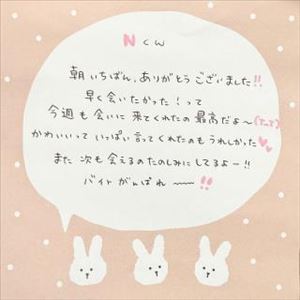 Nくん
朝いちばん、ありがとうございました!!
早く会いたかった!って
今週も会いに来てくれたの最高だよ〜(だって)
かわいいって いっぱい言ってくれたのもうれしかった
また 次も会えるのたのしみにしてるよー!!
バイトがんばれ〜〜!!